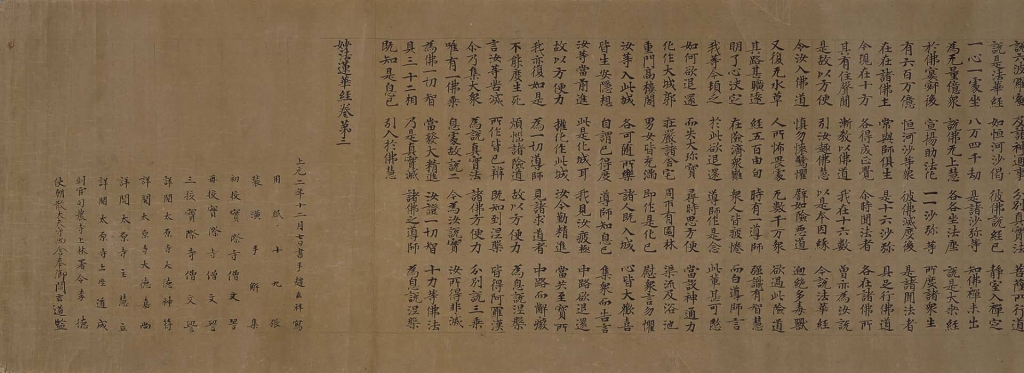 說六波羅蜜 及諸神通事 分別真實法 菩薩所行道
說是法華經 如恒河沙偈 彼佛說經已 靜室入禪定
一心一處坐 八万四千劫 是諸沙弥等 知佛禪未出
為无量億衆 說佛无上慧 各各坐法座 說是大乘經
於佛宴寂後 宣揚助法化 一一沙弥等 所度諸衆生
有六百万億 恒河沙等衆 彼佛滅度後 是諸聞法者
在在諸佛土 常與師俱生 是十六沙弥 具足行佛道
今現在十方 各得成正覺 尒時聞法者 各在諸佛所
其有住聲聞 漸教以佛道 我在十六數 曾亦為汝說
是故以方便 引汝趣佛慧 以是本因緣 今說法華經
令汝入佛道 慎勿懷驚懼 譬如險惡道 逈絕多毒獸
又復无水草 人所怖畏處 无數千万衆 欲過此險道
其路甚曠遠 經五百由旬 時有一導師 強識有智慧
明了心決定 在險濟衆難 衆人皆疲惓 而白導師言
我等今頓乏 於此欲退還 導師作是念 此輩甚可愍
如何欲退還 而失大珍寶 尋時思方便 當設神通力
化作大城郭 莊嚴諸舍宅 周帀有園林 渠流及浴池
重門高樓閣 男女皆充滿 即作是化已 慰衆言勿懼
汝等入此城 各可隨所樂 諸人既入城 心皆大歡喜
皆生安隱想 自謂已得度 導師知息已 集衆而告言
汝等當前進 此是化城耳 我見汝疲極 中路欲退還
故以方便力 權化作此城 汝今勤精進 當共至寶所
我亦復如是 為一切導師 見諸求道者 中路而懈廢
不能度生死 煩惱諸險道 故以方便力 為息說涅槃
言汝等苦滅 所作皆已辦 既知到涅槃 皆得阿羅漢
尒乃集大衆 為說真實法 諸佛方便力 分別說三乘
唯有一佛乘 息處故說二 今為汝說實 汝所得非滅
為佛一切智 當發大精進 汝證一切智 十力等佛法
具三十二相 乃是真實滅 諸佛之導師 為息說涅槃
既知是息已 引入於佛慧
妙法蓮華經卷第三
上元二年十二月七日書手趙玄祥寫
用紙十九張
裝潢手解集
初校寶際寺僧文
再校寶際寺僧文
三校寶際寺僧文
詳閱太原寺大德神符
詳閱太原寺大德嘉尚
詳閱太原寺主慧立
詳閱太原寺上座道成
判官司農寺上林署令李德
使朝散大夫守尚舍奉御閻玄道監